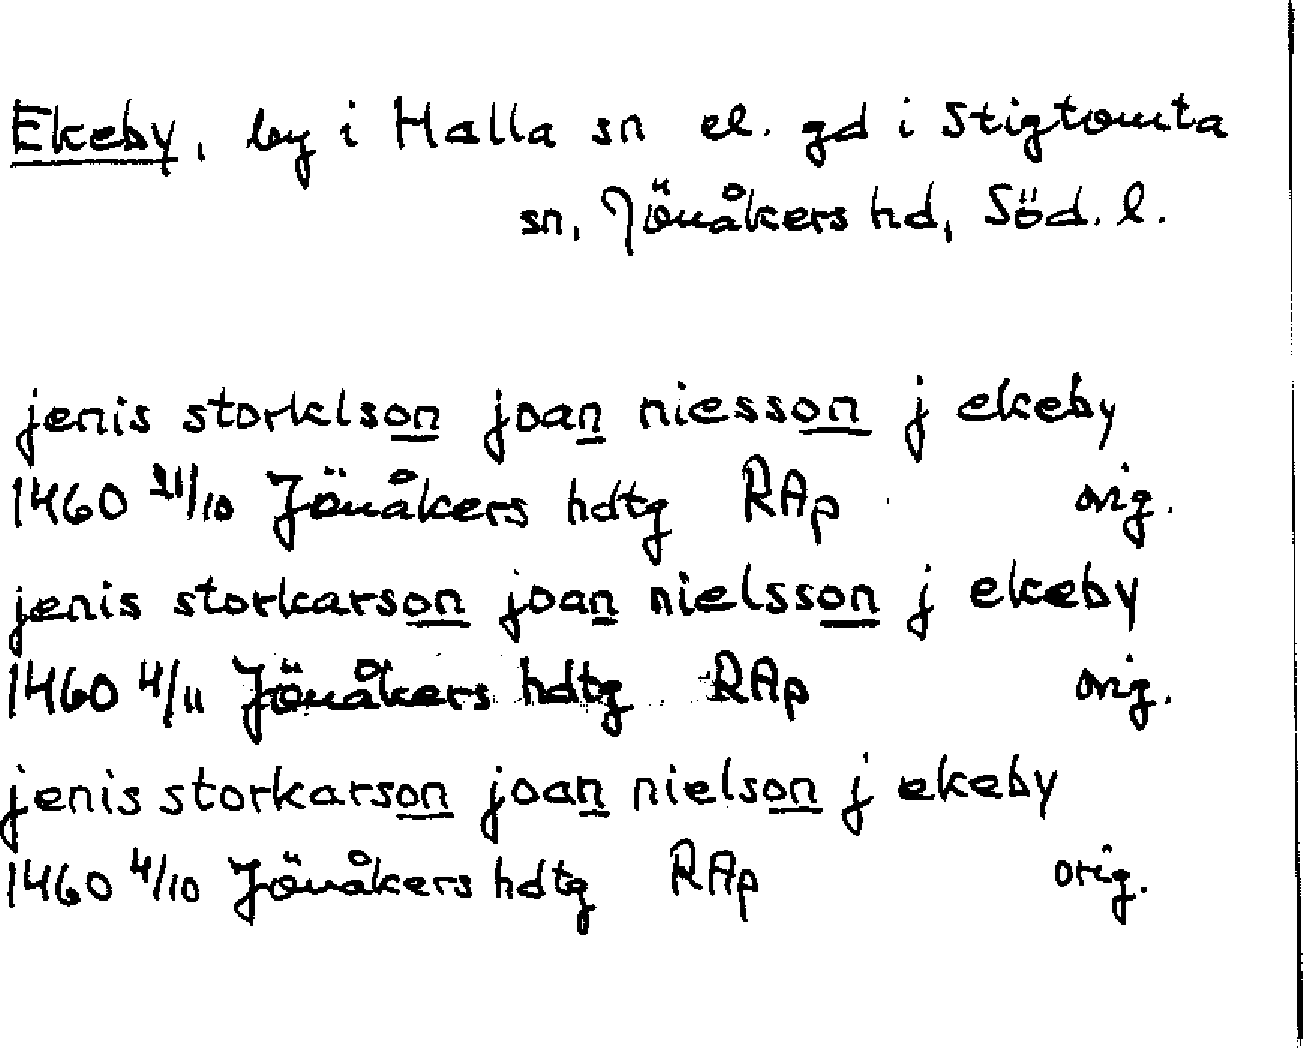 Ekeby, by i Halla sn el. gd i Stigtomta
sn, Jönåkers hd, Söd. l.
jenis storklson joan niesson j ekeby
1460 21/10 Jönåkers hdtg RAp orig.
jenis storkarson joan nielsson j ekeby
1460 4/11 Jönåkers hdtg RAp orig.
jenis storkarson joan nielson j ekeby
1460 4/10 Jönåkers hdtg RAp orig.